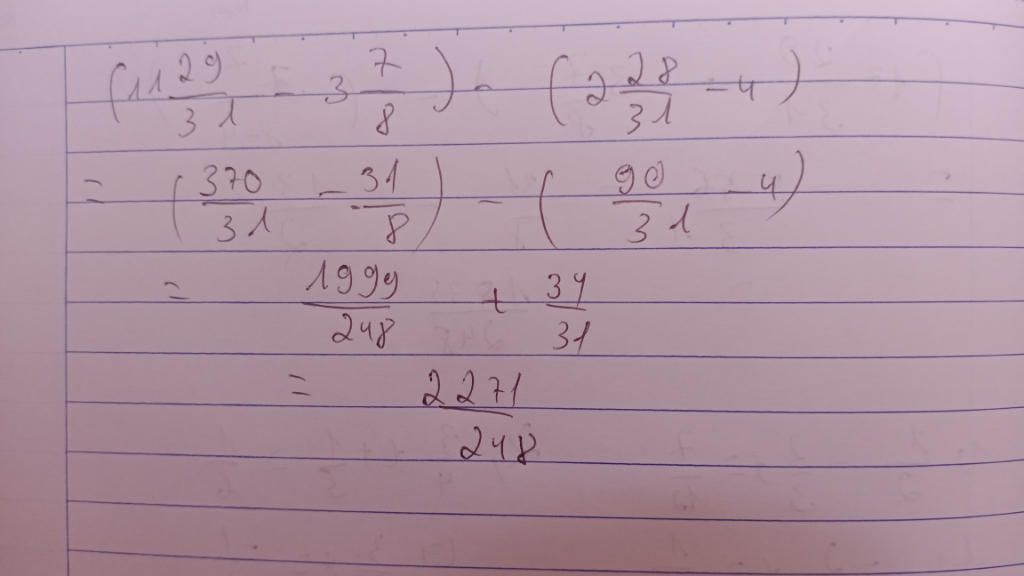 (11 29/31 - 3 7/8) - (2 28/31 - 4)
= (370/31 - 31/8) - (90/31 - 4)
= 1999/248 + 34/31
= 2271/248